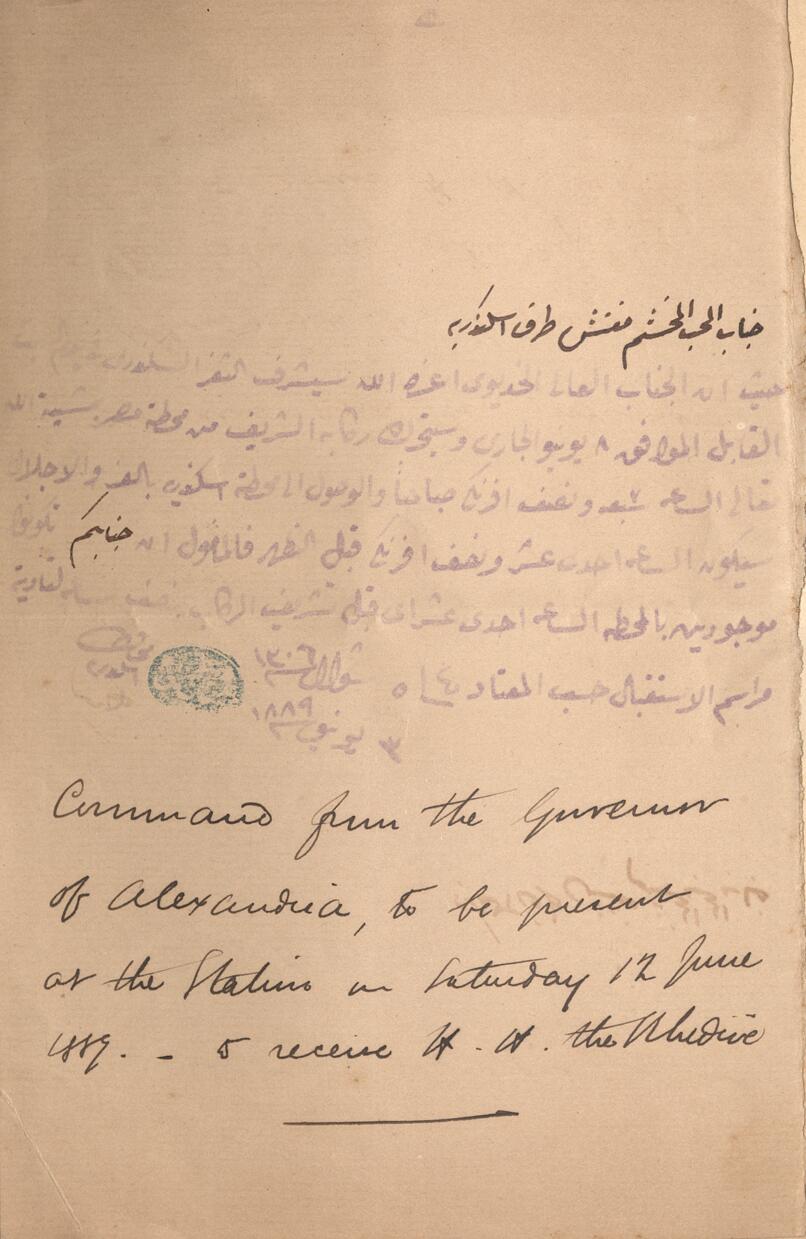 جناب المحب المحتشم مفتش طرف اسكندريه
حيث ان الجناب العالى الخديوى اعزه الله سيشرف الثغر السكندرى
القابل الموافق ٨ يونيو الجارى وسيتحرك ركابه الشريف من محطة مصر بمشيئة الله
تعالى الساعه سبعه ونصف افرنكى صباحاً والوصول الى محطة اسكندريه بالعز والاجلال
سيكون الساعه احدى عشر ونصف افرنكى قبل الظهر فالمأمول ان جنابكم تكونوا
موجودين بالمحطه الساعه احدى عشر اى قبل تشريف الركاب بنصف ساعه لتأدية
مراسم الاستقبال حسب المعتاد ٤ شوال ١٣٠٦
٣ يونيو ١٨٨٩
محافظ
اسكندريه
Command from the Governor
of Alexandria, to be present
at the Station on Saturday 12 June
1889. - to receive H. H. the Khedive